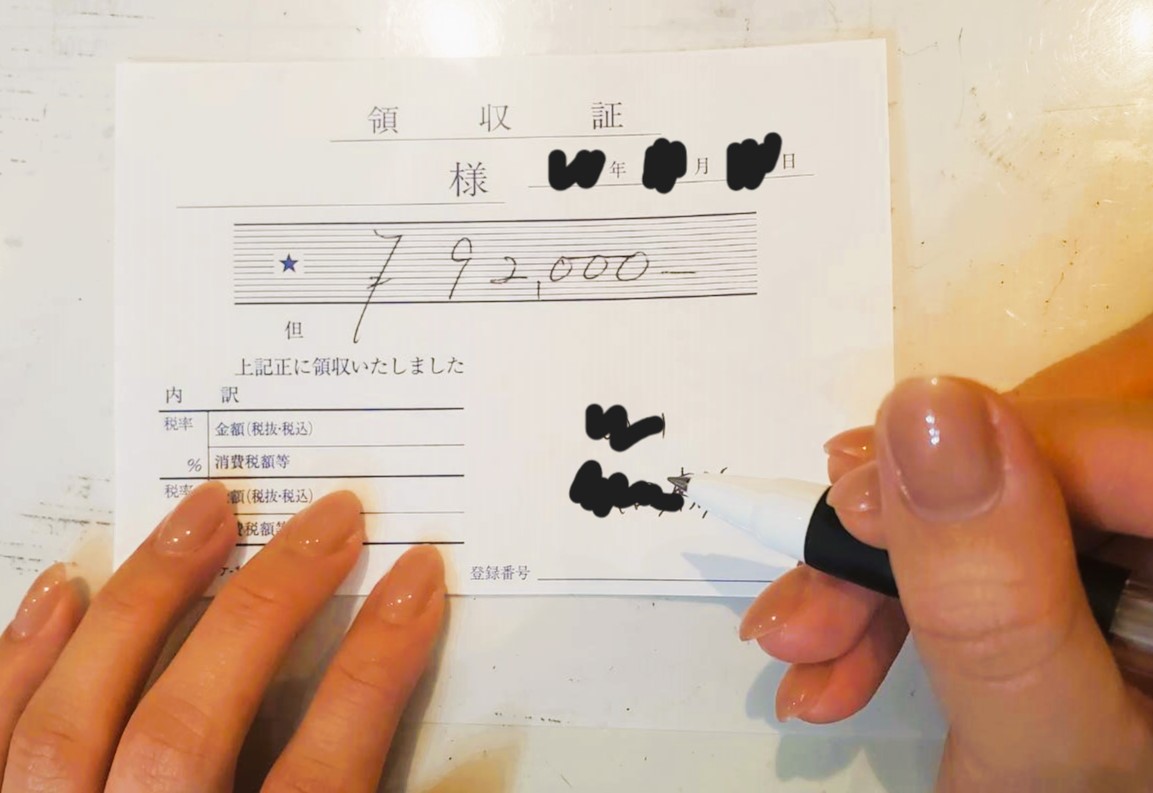 領 収 証
様 年 月 日
★ ¥92,000-
但
上記正に領収いたしました
内 訳
税率 金額(税抜・税込)
% 消費税額等
税率 額(税抜・税込)
税額等
登録番号